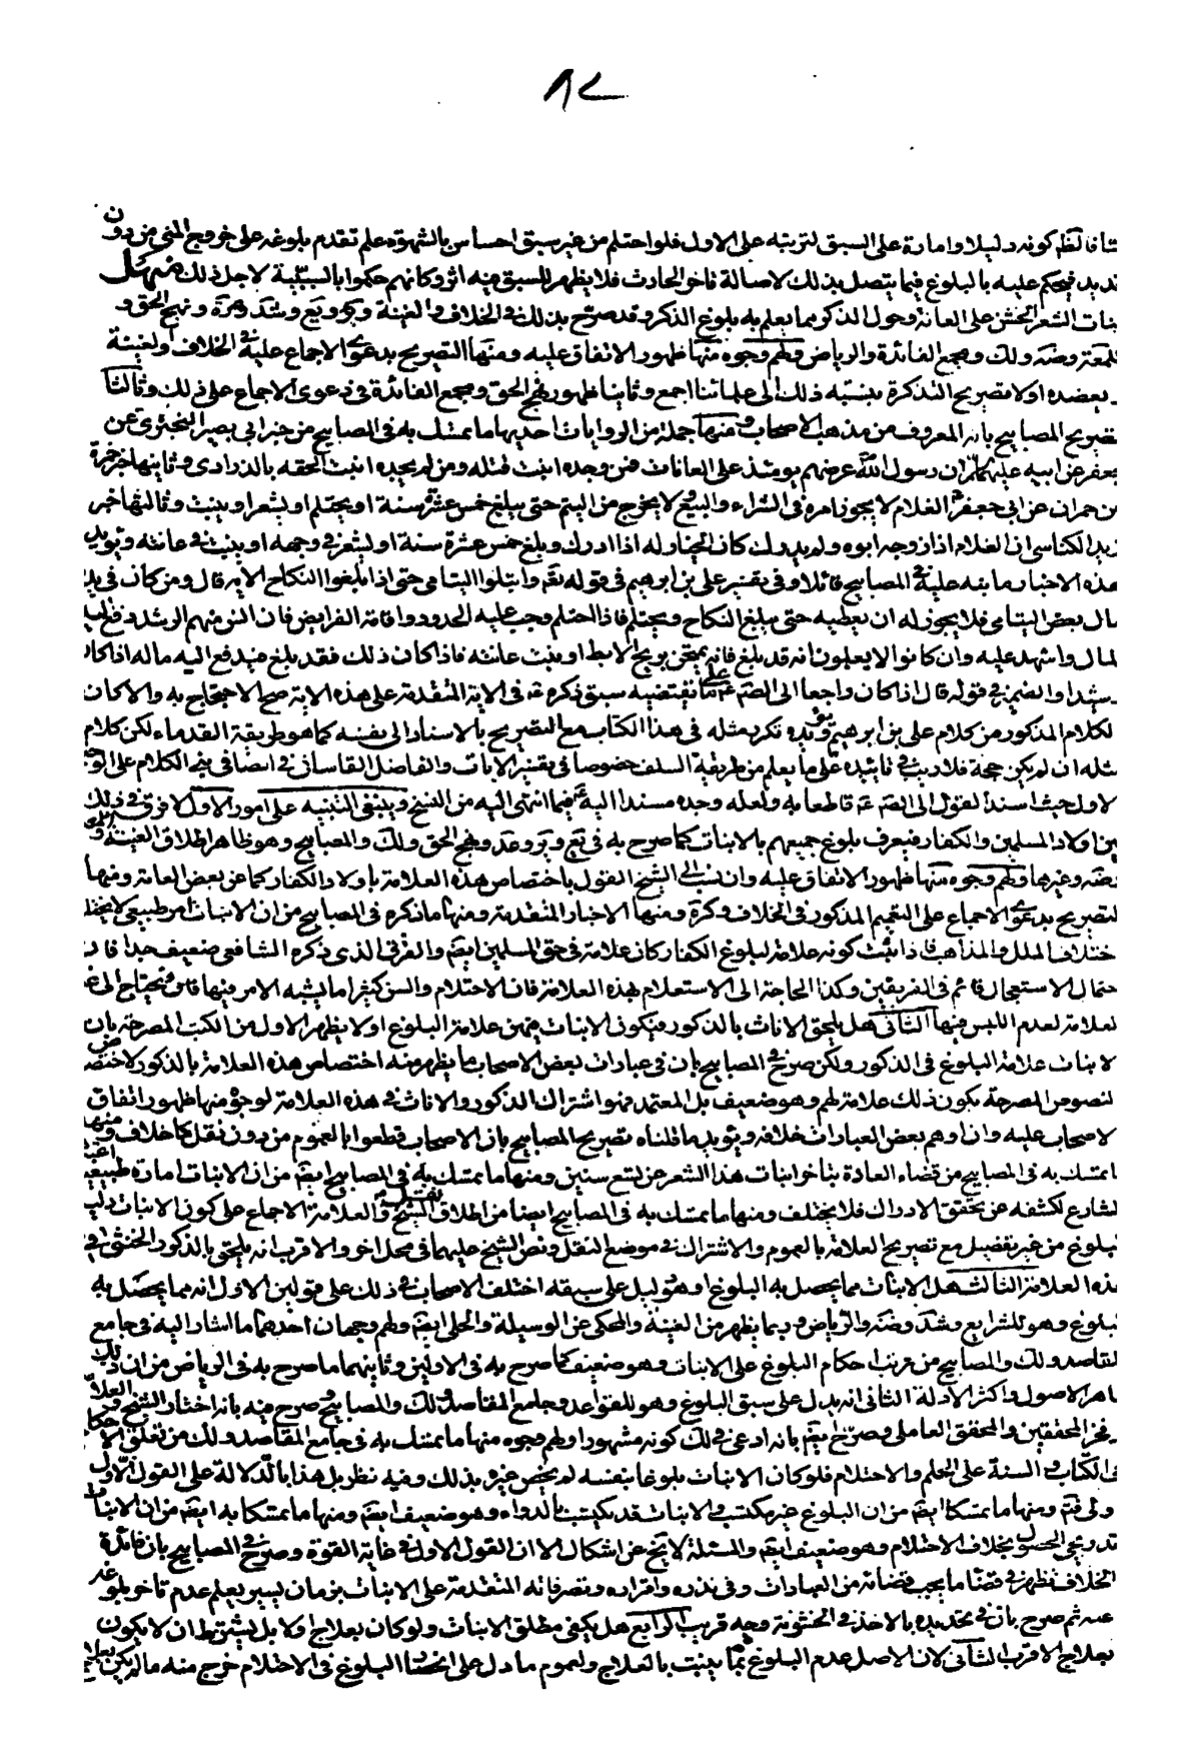 ٨٢
كونه دليلا وامارة على السبق لترتبه على الاول فلو احتلم من غير سبق احساس بالشهوة علم تقدم بلوغه على خروج المنى من دون
فيحكم عليه بالبلوغ فيما يتصل بذلك لاصالة تاخر الحادث فلا يظهر للسبق فيه اثر وكانهم حكموا بالسببية لاجل ذلك منهل
الشعر الخشن على العانة وحول الذكر مما يعلم به بلوغ الذكر وقد صرح بذلك في الخلاف والغنية
ولك ومجمع الفائدة والرياض ولهم وجوه منها ظهور الاتفاق عليه ومنها التصريح بدعوى الاجماع عليه في الخلاف والغنية
يعضده اولا تصريح التذكرة بنسبته ذلك الى علمائنا اجمع وثانيا ظهور نهج الحق ومجمع الفائدة في دعوى الاجماع على ذلك وثالثا
تصريح المصابيح بانه المعروف من مذهب الاصحاب ومنها جملة من الروايات احديها ما تمسك به في المصابيح من خبر ابي
جعفر عن ابيه ان رسول الله عرضهم يومئذ على العانات فمن وجده انبت قتله ومن لم يجده انبت الحقه بالذراري وثانيها خبر حمزة
بن حمران عن ابي جعفر الغلام لا يجوز امره في الشراء والبيع لا يخرج من اليتم حتى يبلغ خمس عشرة سنة او يحتلم او يشعر او ينبت وثالثها خبر
الكناسي ان الغلام اذا زوجه ابوه ولم يدرك كان الخيار له اذا ادرك وبلغ خمس عشرة سنة او يشعر في وجهه او ينبت في عانته ويؤيد
هذه الاخبار ما نبه عليه في المصابيح قائلا وفي تفسير علي بن ابرهيم في قوله تعم وابتلوا اليتامى حتى اذا بلغوا النكاح الاية قال ومن كان في يده
مال بعض اليتامى فلا يجوز له ان يعطيه حتى يبلغ النكاح ويحتلم فاذا احتلم وجب عليه الحدود واقامة الفرايض فان انس منهم الرشد دفع اليه
المال واشهد عليه وان كانوا لا يعلمون انه قد بلغ فانه يمتحن بريح الابط او نبت عانته فاذا كان ذلك فقد بلغ فيدفع اليه ماله اذا كان
رشيدا والضمير في قوله قال اذا كان راجعا الى الصم على ما يقتضيه سبق ذكره في الاية المتقدمة على هذه الاية صح الاحتجاج به والا كان
الكلام المذكور من كلام علي بن ابرهيم تكرر مثله في هذا الكتاب مع التصريح بالاسناد الى نفسه كما هو طريقة القدماء لكن كلام
مثله ان لم يكن حجة فلا ريب في تائيده على ما يعلم من طريقة السلف خصوصا في تفسير الايات والفاضل القاساني في الصافي بنى الكلام على الوجه
الاول حيث اسند القول الى الصم قاطعا به ولعله وجده مسندا اليه فيما انتهى اليه من النسخ وينبغي التنبيه على امور الاول لا فرق في ذلك
بين اولاد المسلمين والكفار فيعرف بلوغ جميعهم بالانبات كما صرح به في ونهج الحق ولك والمصابيح وهو ظاهر اطلاق الغنية
وغيرها ولهم وجوه منها ظهور الاتفاق عليه وان نسب الى الشيخ القول باختصاص هذه العلامة باولاد الكفار كما عن بعض العامة ومنها
التصريح بدعوى الاجماع على التعميم المذكور في الخلاف وكرة ومنها الاخبار المتقدمة ومنها ما ذكره في المصابيح من ان الانبات امر طبيعي لا يختلف
باختلاف الملل والمذاهب فاذا ثبت كونه علامة لبلوغ الكفار كان علامة في حق المسلمين ايضم والفرق الذى ذكره الشافعى ضعيف جدا فان
احتمال الاستعجال قائم في الفريقين وكذا الحاجة الى الاستعلام بهذه العلامة فان الاحتلام والسن كثيرا ما يشبه الامر فيها
العلامة لعدم اللبس فيها الثانى هل يلحق الاناث بالذكور فيكون الانبات فيهن علامة البلوغ اولا يظهر الاول من الكتب المصرحة بان
الانبات علامة البلوغ في الذكور ولكن صرح في المصابيح بان في عبارات بعض الاصحاب ما يظهر منه اختصاص هذه العلامة بالذكور
النصوص المصرحة بكون ذلك علامة لهم وهو ضعيف بل المعتمد هو اشتراك الذكور والاناث في هذه العلامة لوجوه منها ظهور اتفاق
الاصحاب عليه وان اوهم بعض العبارات خلافه ويؤيد ما قلناه تصريح المصابيح بان الاصحاب قطعوا بالعموم من دون نقل خلاف ومنها
ما تمسك به في المصابيح من قضاء العادة بتاخر انبات هذا الشعر عن تسع سنين ومنها ما تمسك به في المصابيح ايضم من ان الانبات امارة طبيعية
الشارع لكشفه عن تحقق الادراك فلا يختلف ومنها ما تمسك به في المصابيح ايضا من اطلاق الشيخ والعلامة الاجماع على كون الانبات دليل
البلوغ من غير تفصيل مع تصريح العلامة بالعموم والاشتراك في موضع النقل ونص الشيخ عليهما في محل اخر والاقرب انه يلحق بالذكور الخنثى في
هذه العلامة الثالث هل الانبات مما يحصل به البلوغ او هو دليل على سبقه اختلف الاصحاب في ذلك على قولين الاول انه مما يحصل به
البلوغ وهو للشرايع والرياض وربما يظهر من الغنية والمحكى عن الوسيلة والحلى ايضم ولهم وجهان احدهما ما اشار اليه في جامع
المقاصد ولك والمصابيح من ترتب احكام البلوغ على الانبات وهو ضعيف كما صرح به في الاولين وثانيهما ما صرح به في الرياض من ان ذلك
ظاهر الاصول واكثر الادلة الثانى انه يدل على سبق البلوغ وهو للقواعد وجامع المقاصد ولك والمصابيح وصرح فيه بانه اختار الشيخ والعلامة
وفخر المحققين والمحقق العاملى وصرح ايضم بانه ادعى في لك كونه مشهورا ولهم وجوه منها ما تمسك به في جامع المقاصد ولك من تعلق الاحكام
في الكتاب والسنة على الحلم والاحتلام فلو كان الانبات بلوغا بنفسه لم يخص غيره بذلك وفيه نظر بل هذا بالدلالة على القول الاول
ومنها ما تمسكا ايضم من ان البلوغ غير مكتسب والانبات قد يكتسب بالدواء وهو ضعيف ايضم ومنها ما تمسكا به ايضم من ان الانبات
تدريجى الحصول بخلاف الاحتلام وهو ضعيف ايضم والمسئلة لا تخ عن اشكال الا ان القول الاول في غاية القوة وصرح في المصابيح بان فائدة
الخلاف تظهر في قضا ما يجب قضائه من العبادات وفى نذره واقراره وتصرفاته المتقدمة على الانبات بزمان يسير يعلم عدم تاخر بلوغه
عنه ثم صرح بان في تحديده بالاخذ في الخشونة وجه قريب الرابع هل يكفى مطلق الانبات ولو كان بعلاج اولا بل يشترط ان لا يكون
بعلاج الاقرب الثانى لان الاصل عدم البلوغ بما ينبت بالعلاج ولعموم ما دل على انحصار البلوغ في الاحتلام خرج منه ما لم يكن بعلاج